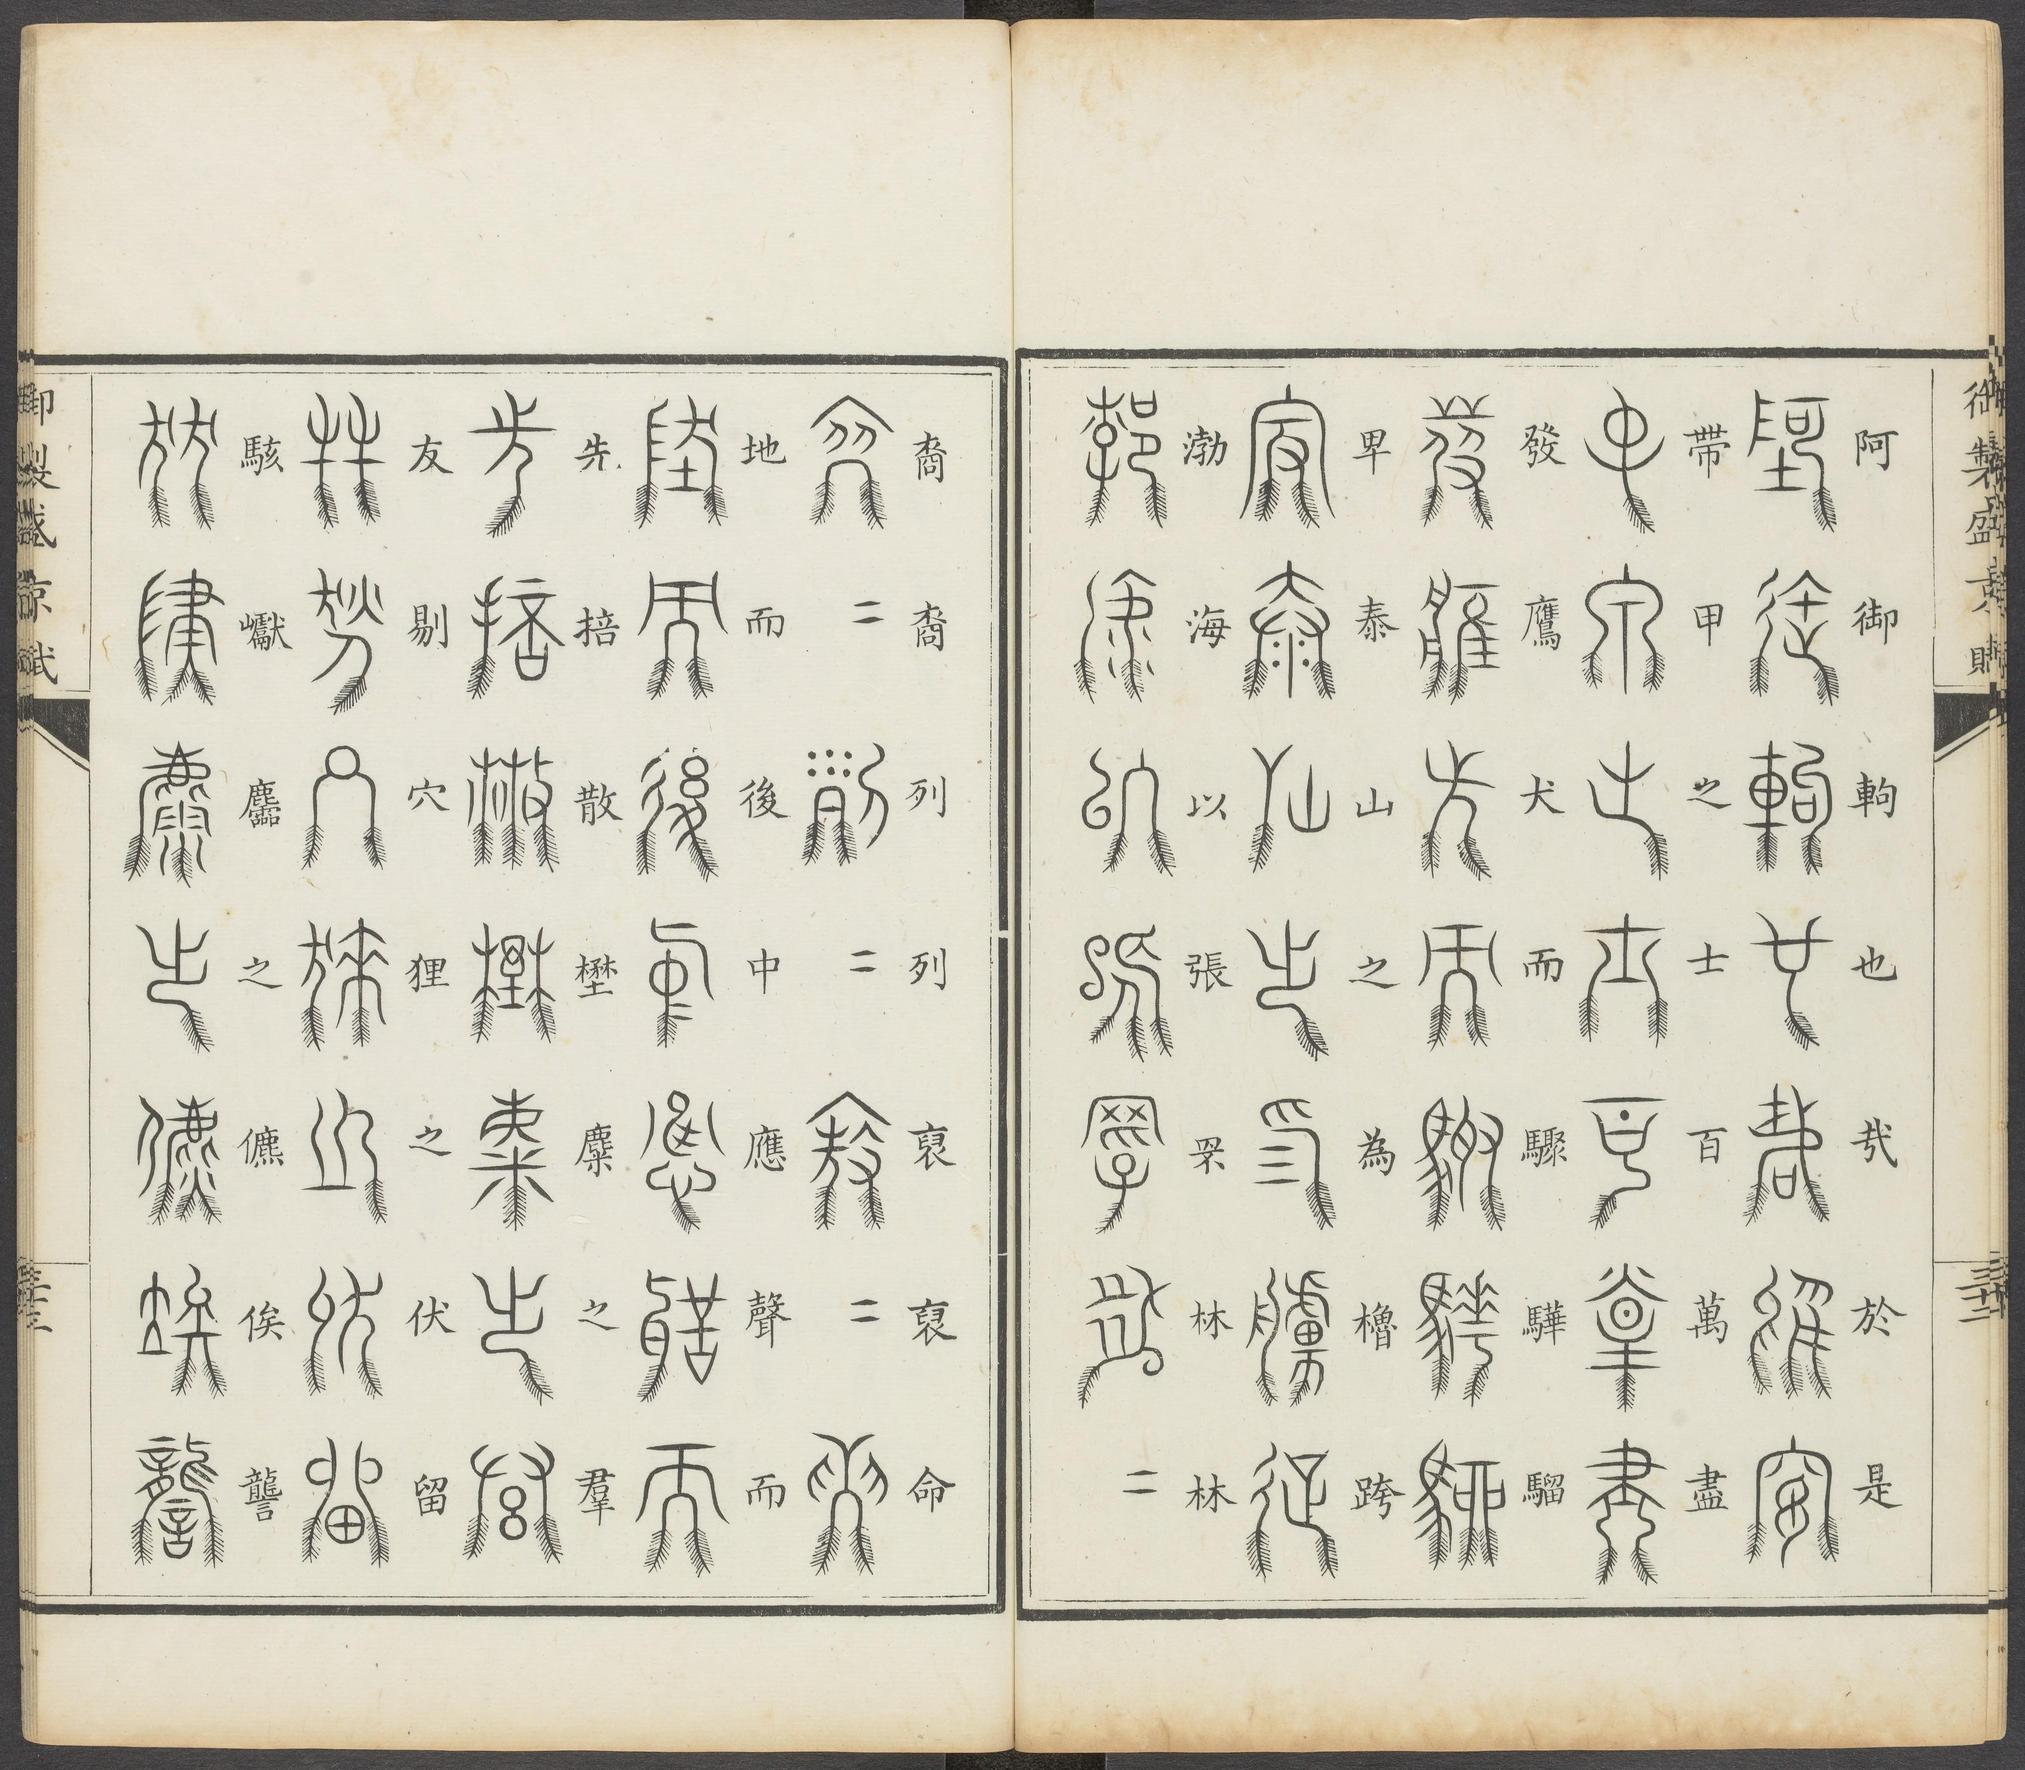 御製盛京賦
阿御軥也㢤於是
帶甲之士百萬盡
發鷹犬而驟驊騮
卑泰山之為櫓跨
渤海以張罘林林
裔裔列列裒裒命
地而後中應聲而
先掊散埜麋之羣
友剔穴狸之伏留
駭巘麤之儦俟讋
御製盛京賦